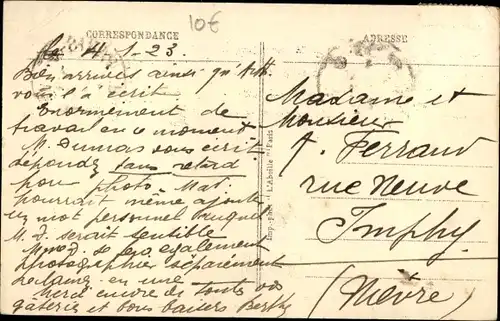 10€
CORRESPONDANCE
Le 4-1-23.
Bien arrivés ainsi qu'
vous l'a écrit
Enormement de
travail en ce moment
M. Dumas vous écrit.
répondez sans retard
pour photo. Mat.
pourrait même ajouter
un mot personnel auquel
M. D. serait sensible
Mme D. se  également
photographier séparément
 en une
Merci encore de toutes vos
gâteries et bons baisers Berthe
Imp.-phot. "L'Abeille" Paris
ADRESSE
Madame et
Monsieur
A. Ferrand
rue Neuve
Imphy
(Nièvre)